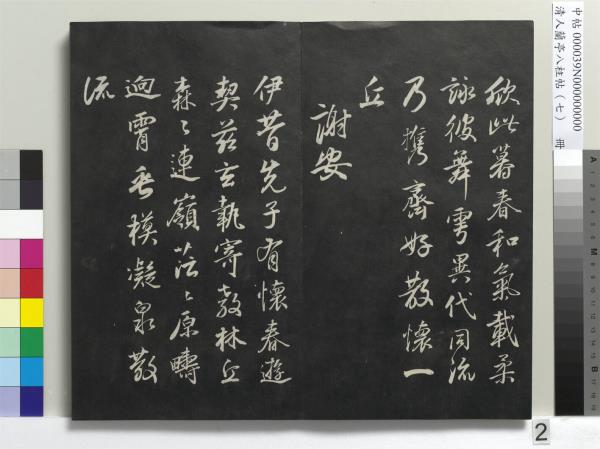 欣此暮春和氣載柔
詠彼舞雩異代同流
乃攜齊好散懷一
丘
謝安
伊昔先子有懷春遊
契茲言執寄敖林丘
森〻連嶺茫〻原疇
逈霄垂模凝泉散
流
中帖 000039N000000000
清人蘭亭八柱帖（七） 冊
2